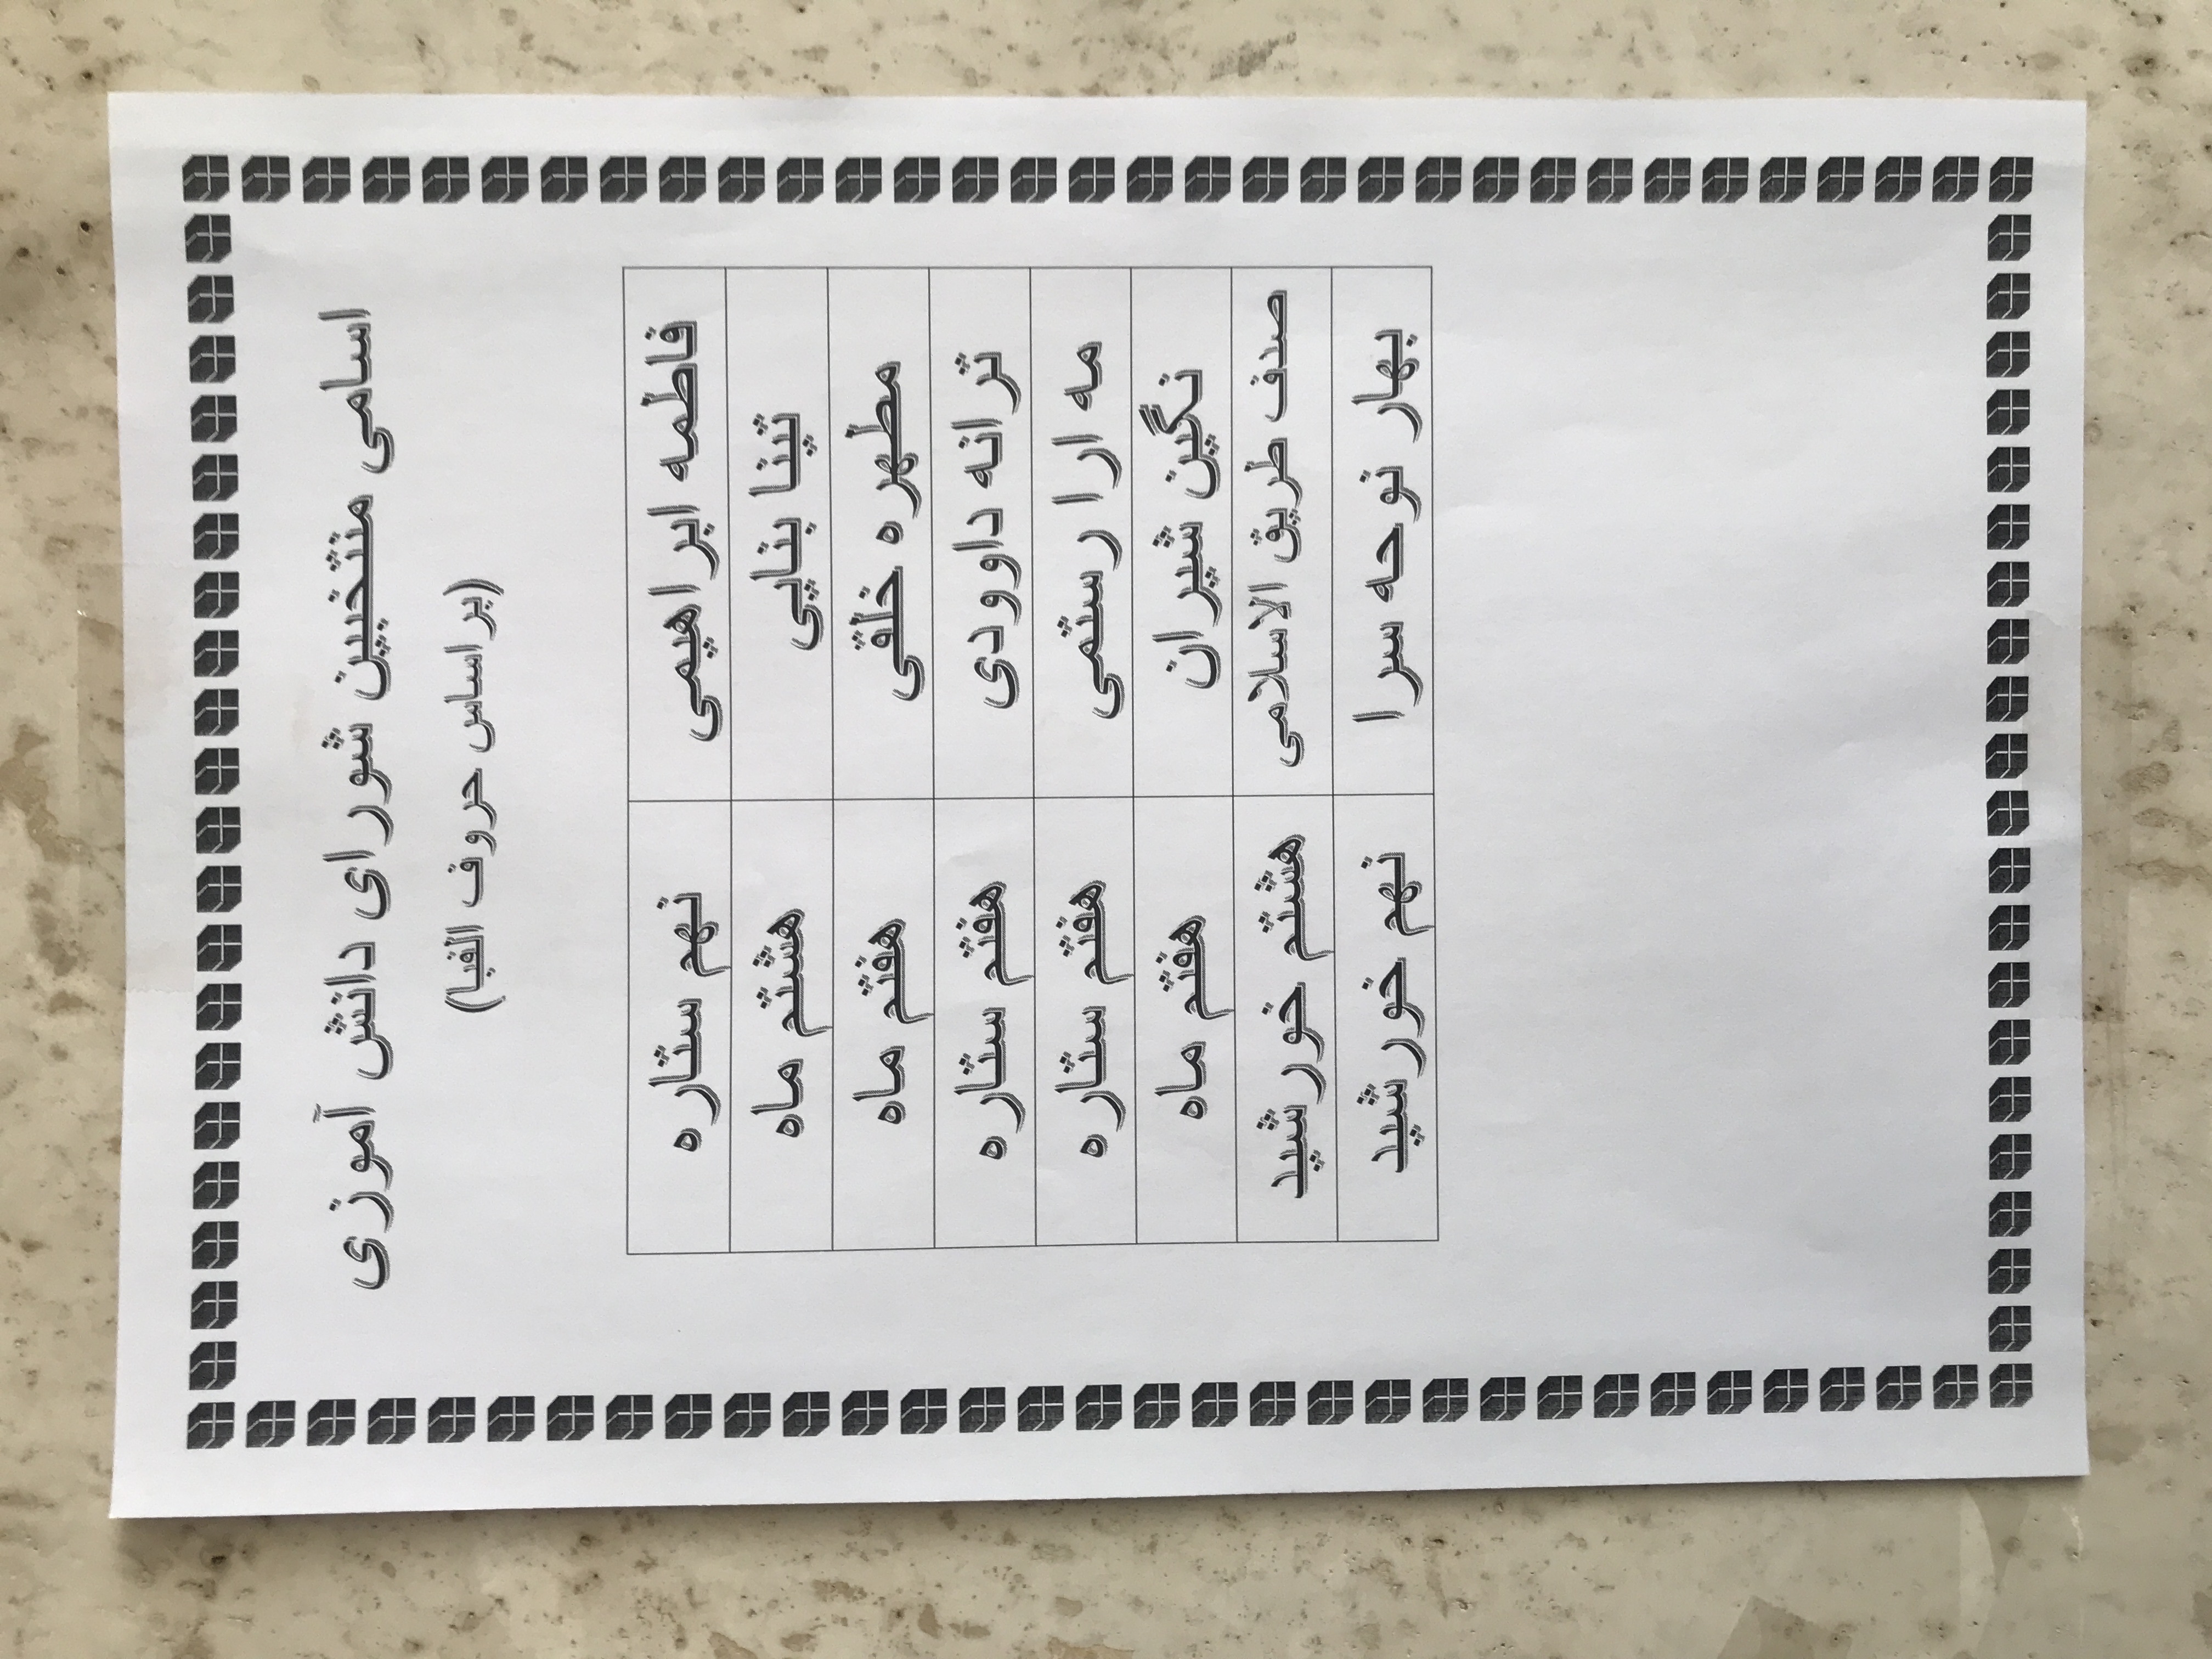 اسامی منتخبین شورای دانش آموزی
(بر اساس حروف الفبا)
فاطمه ابراهیمی نهم ستاره
تینا بنایی هشتم ماه
مطهره خلقی هفتم ماه
ترانه داوودی هفتم ستاره
مه ارا رستمی هفتم ستاره
نگین شیران هفتم ماه
صدف طریق الاسلامی هشتم خورشید
بهار نوحه سرا نهم خورشید